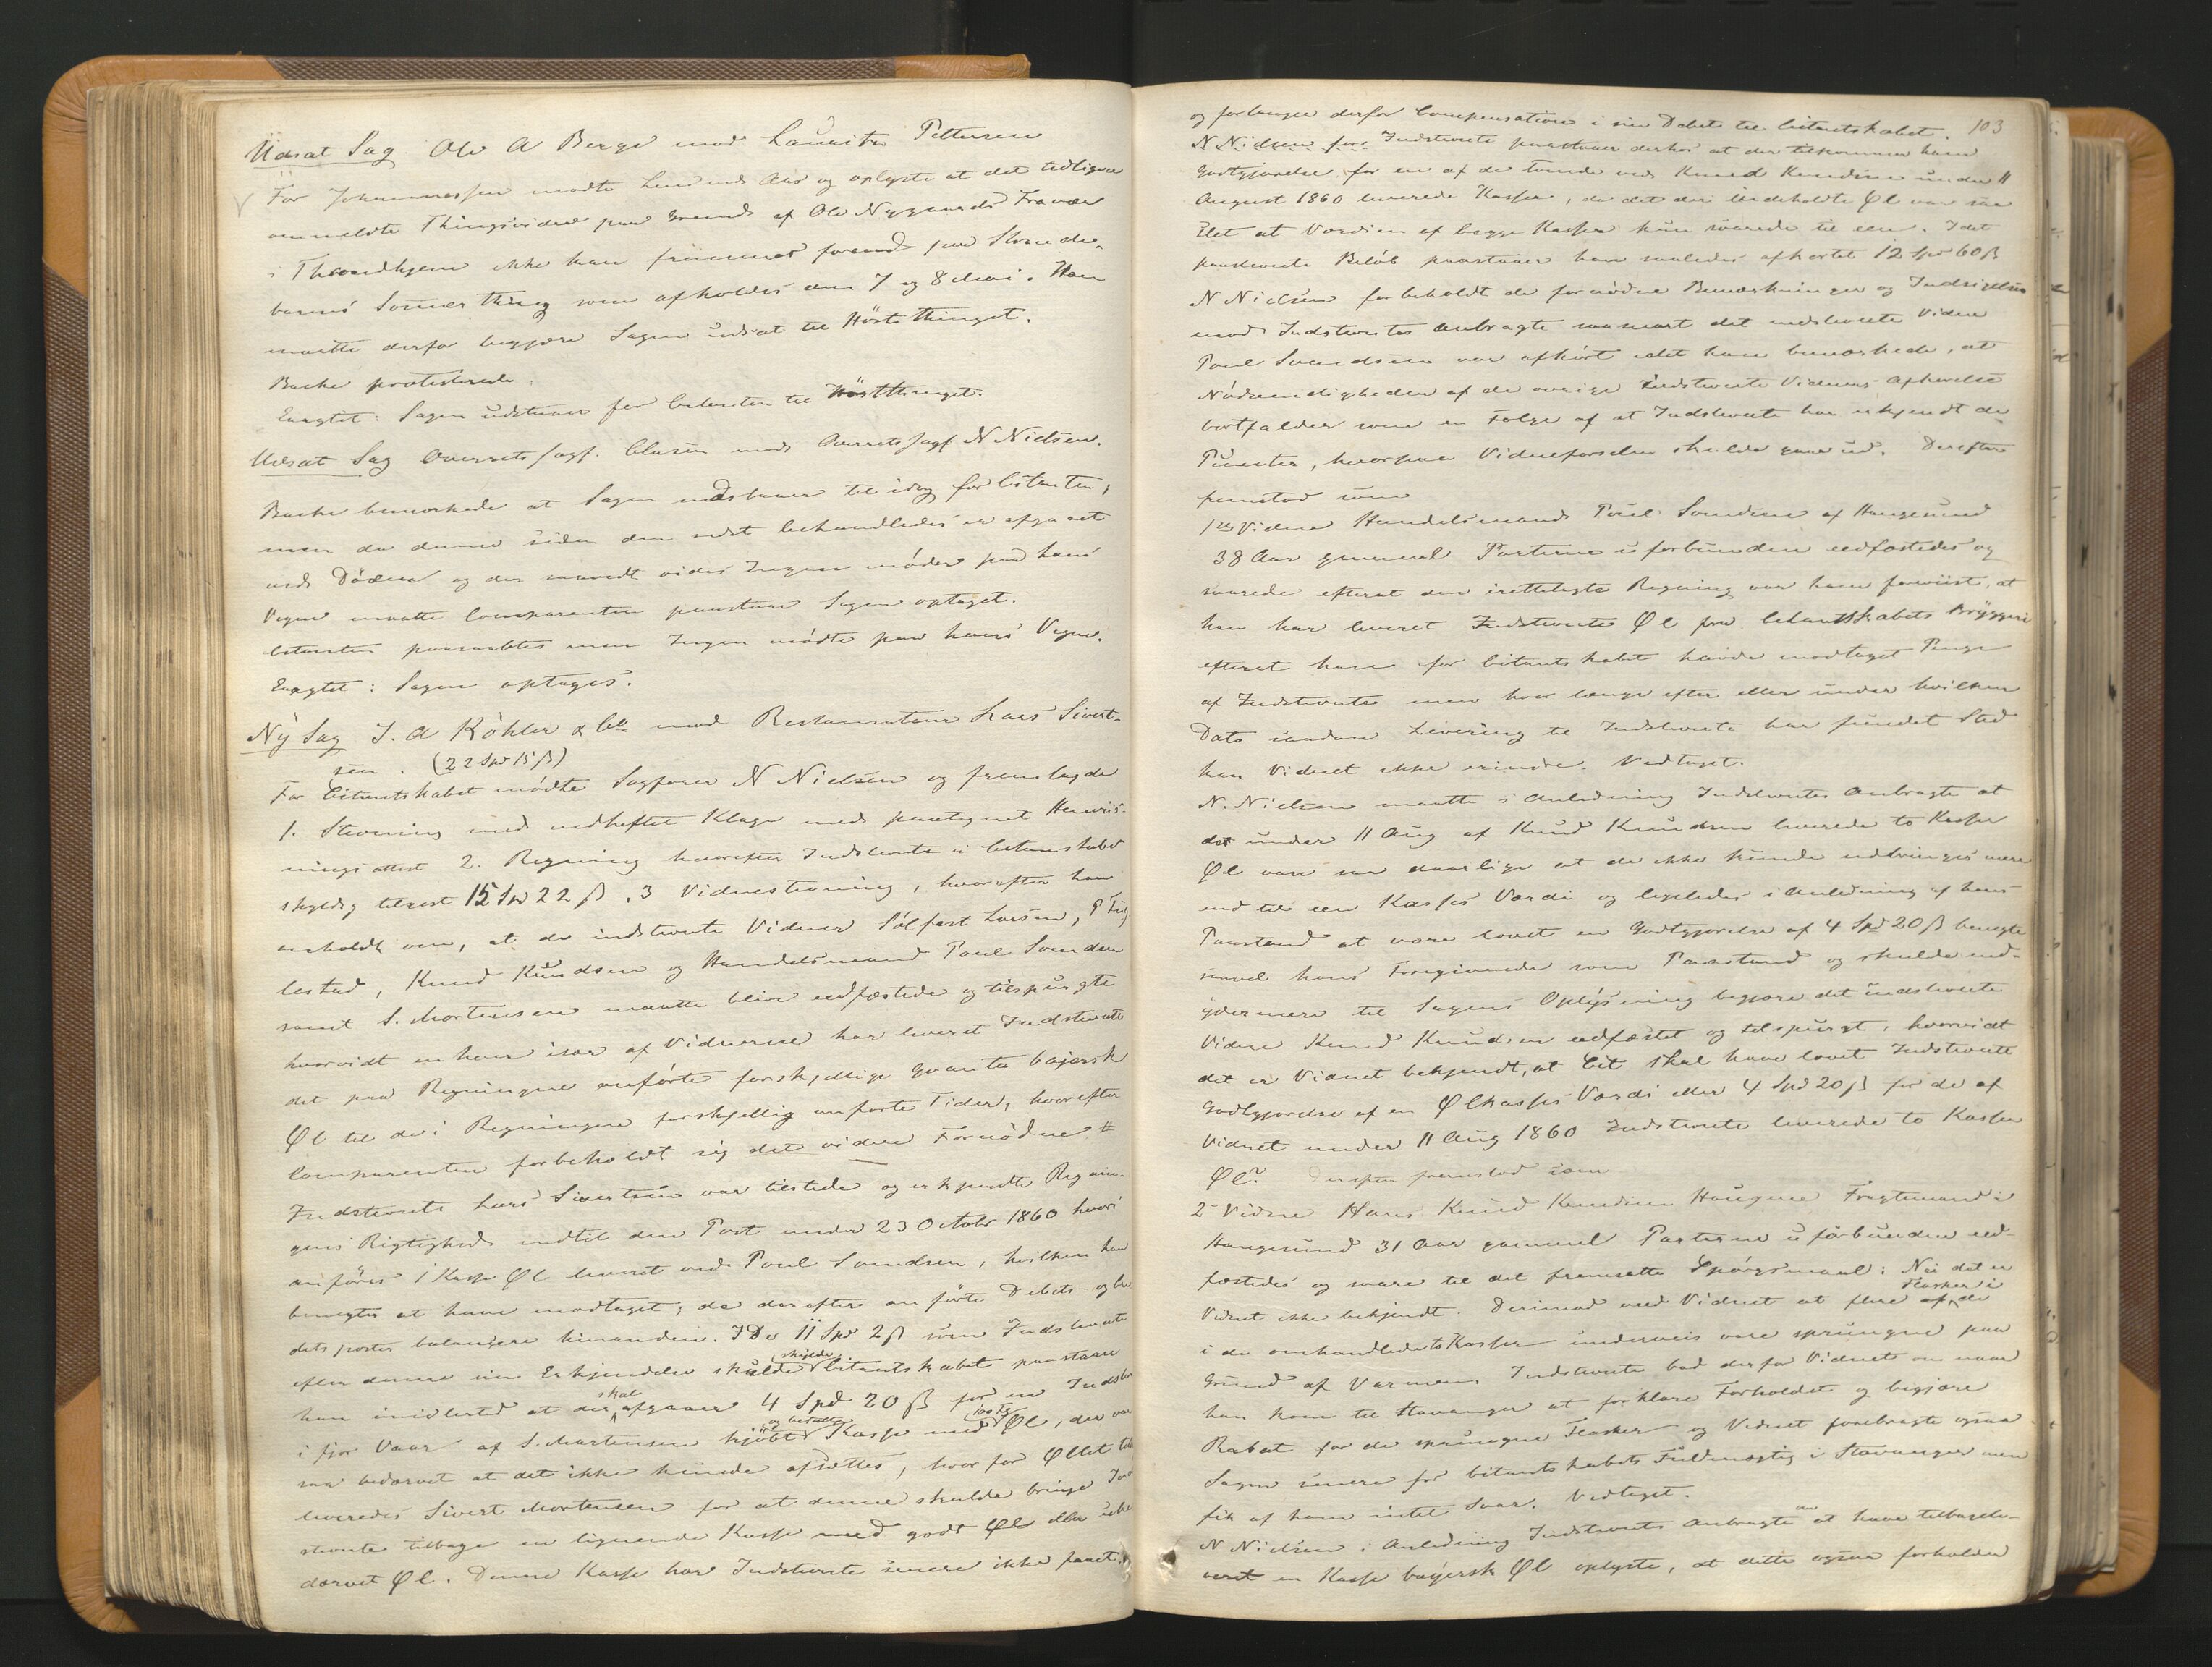 Udsat Sag. Ole A Berge mod Lauritz Pettersen
For Johannessen mødte Lensmd Aas og oplyste at det tidligere
anmeldte Thingsvidne paa Grund af Ole Nygaards Fravær
i Throndhjem ikke kan fremmes forend paa Strande-
barms Sommerthing som afholdes den 7 og 8 Mai. Han
maatte derfor begjære Sagen udsat til Høstthinget.
Bache protesterede.
Eragtet: Sagen udstaaer for Citanten til Høstthinget.
Udsat Sag Overretssagf. Clasen mod Overretssagf N Nielsen.
Bache bemærkede at Sagen udstaaer til idag for Citanten,
men da denne siden den sidst behandledes er afgaaet
ved Døden og der saavidt vides Ingen møder paa hans
Vegne maatte Comparenten paastaae Sagen optaget.
Citanten paaraabtes men Ingen mødte paa hans Vegne.
Eragtet: Sagen optages.
Ny Sag J. A Köhler & Co mod Restaurateur Lars Sivert-
sen. (22 Spd 15 ß)
For Citantskabet mødte Sagfører N Nielsen og fremlagde
1. Stevning med vedheftet Klage med paategnet Henvis-
nings attest 2. Regning hvorefter Indstevnte er Citantskabet
skyldig tilrest 15 Spd 22 ß. 3 Vidnestevning, hvorefter han
anholdt om, at de indstevnte Vidner Sølfest Larsen, P
lestad, Knud Knudsen og Handelsmand Poul Svendsen
samt S. Mortensen maatte blive eedfæstede og tilspurgte
hvorvidt enhver især af Vidnerne har leveret Indstevnte
det paa Regningen anførte forskjellige Qvanta bajersk
Øl til de i Regningen forskjellig anførte Tider, hvorefter
Comparenten forbeholdt sig det videre Fornødne #
Indstevnte Lars Sivertsen var tilstede og erkjendte Regnin-
gens Rigtighed indtil den Post under 23 October 1860 hvori
anføres 1 Kasse Øl leveret ved Poul Svendsen, hvilken han
benegter at have modtaget; de derefter anførte Debets- og Cre
dets poster balangere hinanden. I De 11 Spd 2 ß som Indstevnte
efter denne sin Erkjendelse skulde skylde Citantskabet paastaaer
han imidlertid at der skal afgaaer 4 Spd 20 ß for en Indst
i fjor Vaar af S. Mortensen kjøbt og betalt Kasse med Øl, der var
saa bedærvet at det ikke kunde afsættes, hvorfor Øllet til
leveredes Sivert Mortensen for at denne skulde bringe Ind
stevnte tilbage en lignende Kasse med godt Øl eller ube
dærvet Øl. Denne Kasse har Indstevnte senere ikke faaet.
103
og forlanger derfor Compensation i sin Debet til Citantskabet.
N Nielsen for Indstevnte paastaaer derhos at der tilkommer ham
Godtgjørelse for en af de tvende ved Knud Knudsen under 11
August 1860 leverede Kasser, da det deri indeholdte Øl var saa
slet at Værdien af begge Kasser kun svarede til een. I det
paastevnte Beløb paastaaer han saaledes afkortet 12 Spd 60 ß
N Nielsen forbeholdt de fornødne Bemærkninger og Indsigelser
mod Indstevntes Anbragte saasnart det indstevnte Vidne
Poul Svendsen var afhørt idet han bemærkede, at
Nødvendigheden af de øvrige indstevnte Vidners Afhørelse
bortfalder som en Følge af at Indstevnte har erkjendt de
Puncter, hvorpaa Vidneførselen skulde gaae ud. Derefter
fremstod som
1ste Vidne Handelsmand Poul Svendsen af Haugesund
38 Aar gammel Parterne uforbunden eedfæstedes og
svarede efterat den irettelagte Regning var ham foreviist, at
han har leveret Indstevnte Øl fra Citantskabets Bryggeri
efterat han for Citantskabet havde modtaget Penge
af Indstevnte men hvor længe efter eller under hvilken
Dato saadan Levering til Indstevnte har fundet Sted
kan Vidnet ikke erindre. Vedtaget.
N. Nielsen maatte i Anledning Indstevntes Anbragte at
det under 11 Aug af Knud Knudsen leverede to Kasser
Øl vare saa daarlige at de ikke kunde udbringes mere
end til een Kasses Værdi og ligeledes i Anledning af hans
Paastand at være lovet en Godtgjørelse af 4 Spd 20 ß benegte
saavel hans Foregivende som Paastand og skulde end-
ydermere til Sagens Oplysning begjære det indstevnte
Vidne Knud Knudsen eedfæstet og tilspurgt, hvorvidt
det er Vidnet bekjendt, at Cit skal have lovet Indstevnte
Godtgjørelse af en Ølkasses Værdi eller 4 Spd 20 ß for de af
Vidnet under 11 Aug 1860 Indstevnte leverede to Kasser
Øl? Derefter fremstod som
2 Vidne Hans Knud Knudsen Haugene Fragtemand i
Haugesund 31 Aar gammel Parterne uforbunden eed-
fæstedes og svare til det fremsatte Spørgsmaal: Nei det er
Vidnet ikke bekjendt. Derimod veed Vidnet at flere af Flasker i de
i de omhandlede to Kasser underveis vare sprungne paa
Grund af Varmen. Indstevnte bad derfor Vidnet om naar
han kom til Stavanger at forklare Forholdet og begjære
Rabat for de sprungne Flasker og Vidnet forebragte ogsaa
Sagen senere for Citantskabets Fuldmægtig i Stavanger men
fik af ham intet Svar. Vedtaget.
N Nielsen i Anledning Indstevntes Anbragte om at have tilbagele-
veret en Kasse bayersk Øl oplyste, at dette ogsaa forholder